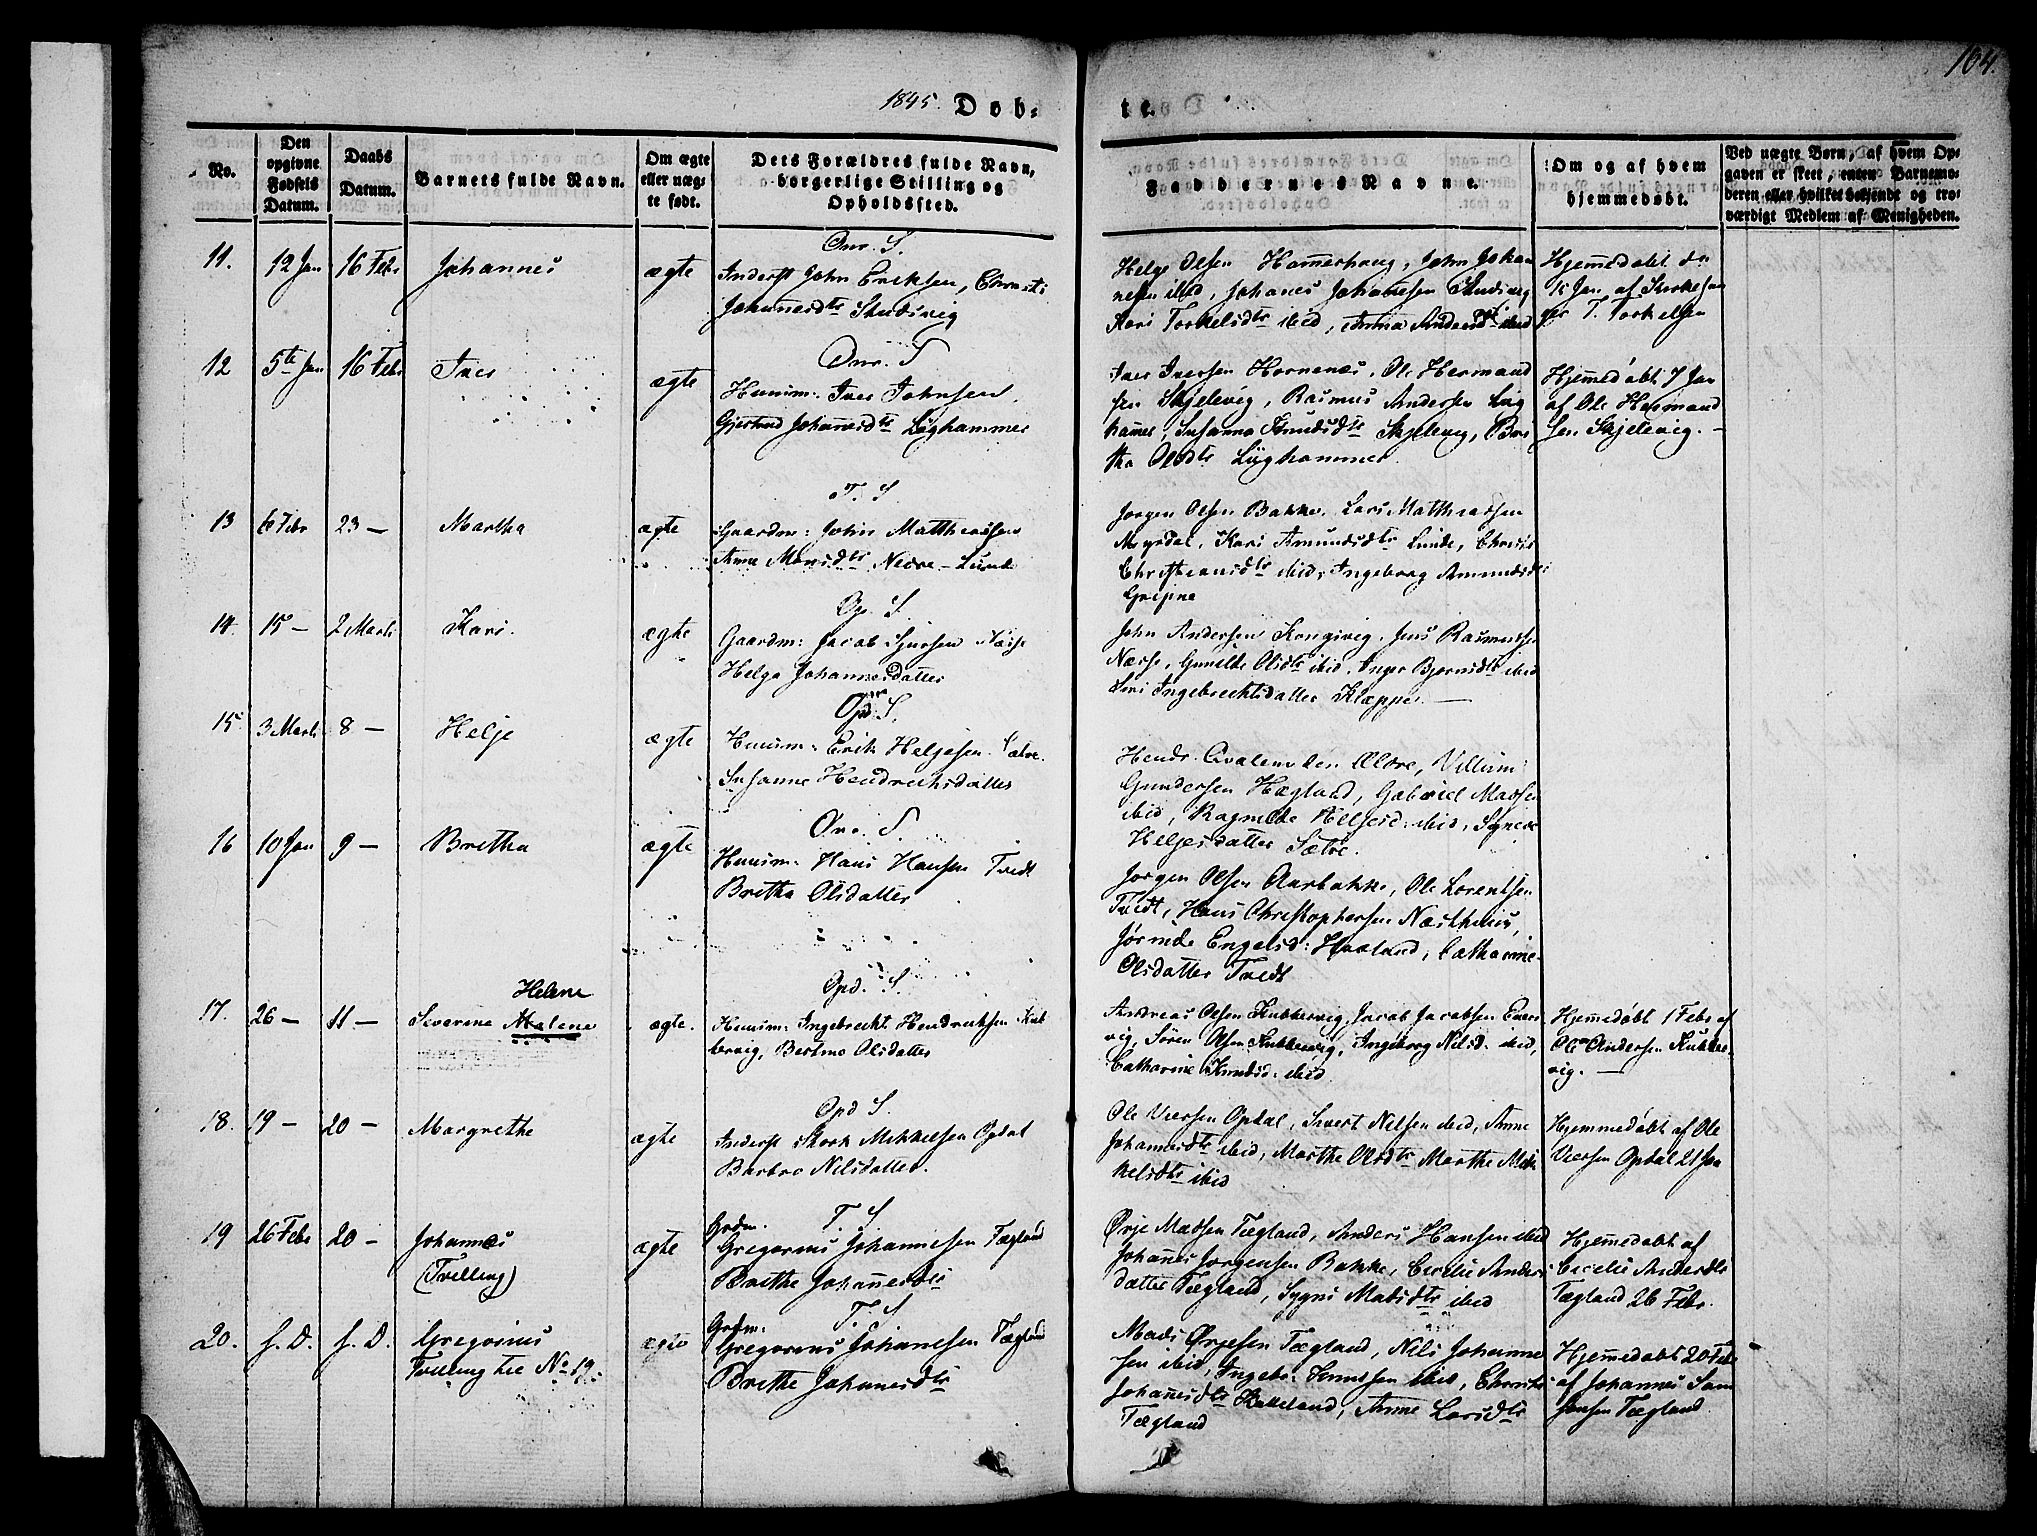 104.
1845. Døb-
te.
No.
Den opgivne Fødsels Datum.
Daabs Datum.
Barnets fulde Navn.
Om ægte eller uægte født.
Dets Forældres fulde Navn, borgerlige Stilling og Opholdssted.
Faddernes Navne.
Om og af hvem hjemmedøbt.
Ved uægte Børn, af hvem Opgaven er skeet, enten Barnemoderen eller hvilket bekjendt og troværdigt Medlem af Menigheden.
11. 12 Jan 16 Febr Johannes ægte
Inderst John Eriksen,
Johannesdtr Studsvig
Helge Olsen Hamerhoug, John Johan
nesen ibid, Johanes Johannesen Studsvig
Kari Torkelsdtr ibid, Anna Andersdtr ibid
Hjemmedøbt
T. Torkelsen
12 5te Jan 16 Febr Iver ægte
Huusm: Iver Johnsen
Gjertrud Johannesdtr Lyghammer
Iver Iversen Hornenes, Ole Hermand
sen Skjelevig, Rasmus Andersen Lyg
hamer, Susanna Knudsdtr Skjelevig, Bri
tha Olsdtr Lyghammer
Hjemmedøbt 7 Jan
af Ole Hermand
sen Skjelevig. —
13 6 Febr 23 — Martha ægte
T. S.
Gaardm: John Matthiassen
Anne Monsdtr Nedre-Lunde
Jørgen Olsen Bakke, Lars Matthiassen
Myrdal, Kari Amundsdtr Lunde,
Christiansdtr ibid, Ingeborg Amundsd
Gripne
14. 15 — 2 Marti Kari. ægte
Gaardm: Jacob Sjursen Næsse
Helga Johannesdatter
John Andersen Kongsvig, Jens Rasmussen
Næsse, Gunilde Olsdtr ibid, Inger Bjørnsdtr ibid
Siri Ingebrechtsdatter Klæppe. —
15. 3 Marti 8 — Helje ægte
Huusm: Erik Helgesen Sætre.
Susanne Hendrichsdatter
Hendr. Villum
Gundersen Hægland, Gabriel Madsen
ibid, Ragnilde Helgesd: ibid, Signe
Helgesdatter Sætre.
16 10 Jan 9 — Britha ægte
Huusm: Hans Hansen Tvedt
Britha Olsdatter
Jørgen Olsen Aarbakke, Ole Lorentsen
Tvedt, Hans Christophersen Næsthuus,
Jørinde Engelsd: Hvaland, Catharine
Olsdatter Tvedt
17. 26 — 11 — Severine Malene ægte.
Helene
Opd. S.
Huusm: Ingebrecht Hendriksen Kub
bervig, Bertine Olsdatter
Andreas Olsen Kubbervig, Jacob Jacobsen Ener
vig, Søren Olsen Kubbervig, Ingeborg Nilsd: ibid,
Catharine Knudsd: ibid
Hjemmedøbt 1 Febr af
Ole Andersen Kubber
vig. —
18. 19 — 20 — Margrethe ægte
Opd S.
Inderst Stork Mikkelsen Opdal
Barbro Nilsdatter.
Ole Viersen Opdal, Sivert Nilsen ibid, Anne
Johannesdtr ibid, Marthe Olsdtr Marthe Mik
kelsdtr ibid
Hjemmedøbt af Ole
Viersen Opdal 21 Jan
19 26 Febr 20 — Johannes ægte
(Tvilling)
Grdm. T. S.
Gregorius Johannesen Tægland
Brithe Johannesdtr
Ørje Madsen Tægland, Anders Hansen ibid
Johanes Jørgensen Bakke, Cecilie Anders
datter Tægland, Sygni Madsdtr ibid
Hjemmedøbt af
Cecilie Andersdtr
Tægland 26 Febr.
20. s. D. s. D. Gregorius ægte
Tvilling til No 19.
Grdm: T. S
Gregorius Johanesen Tægland
Brithe Johanesdtr
Mads Ørjesen Tægland, Nils Johanne
sen ibid, Ingebr: Knutsen ibid,
Johanesdtr Hatteland, Anne Larsdtr
Tægland
Hjemmedøbt 20 Febr
af Johannes Sam
sonsen Tægland